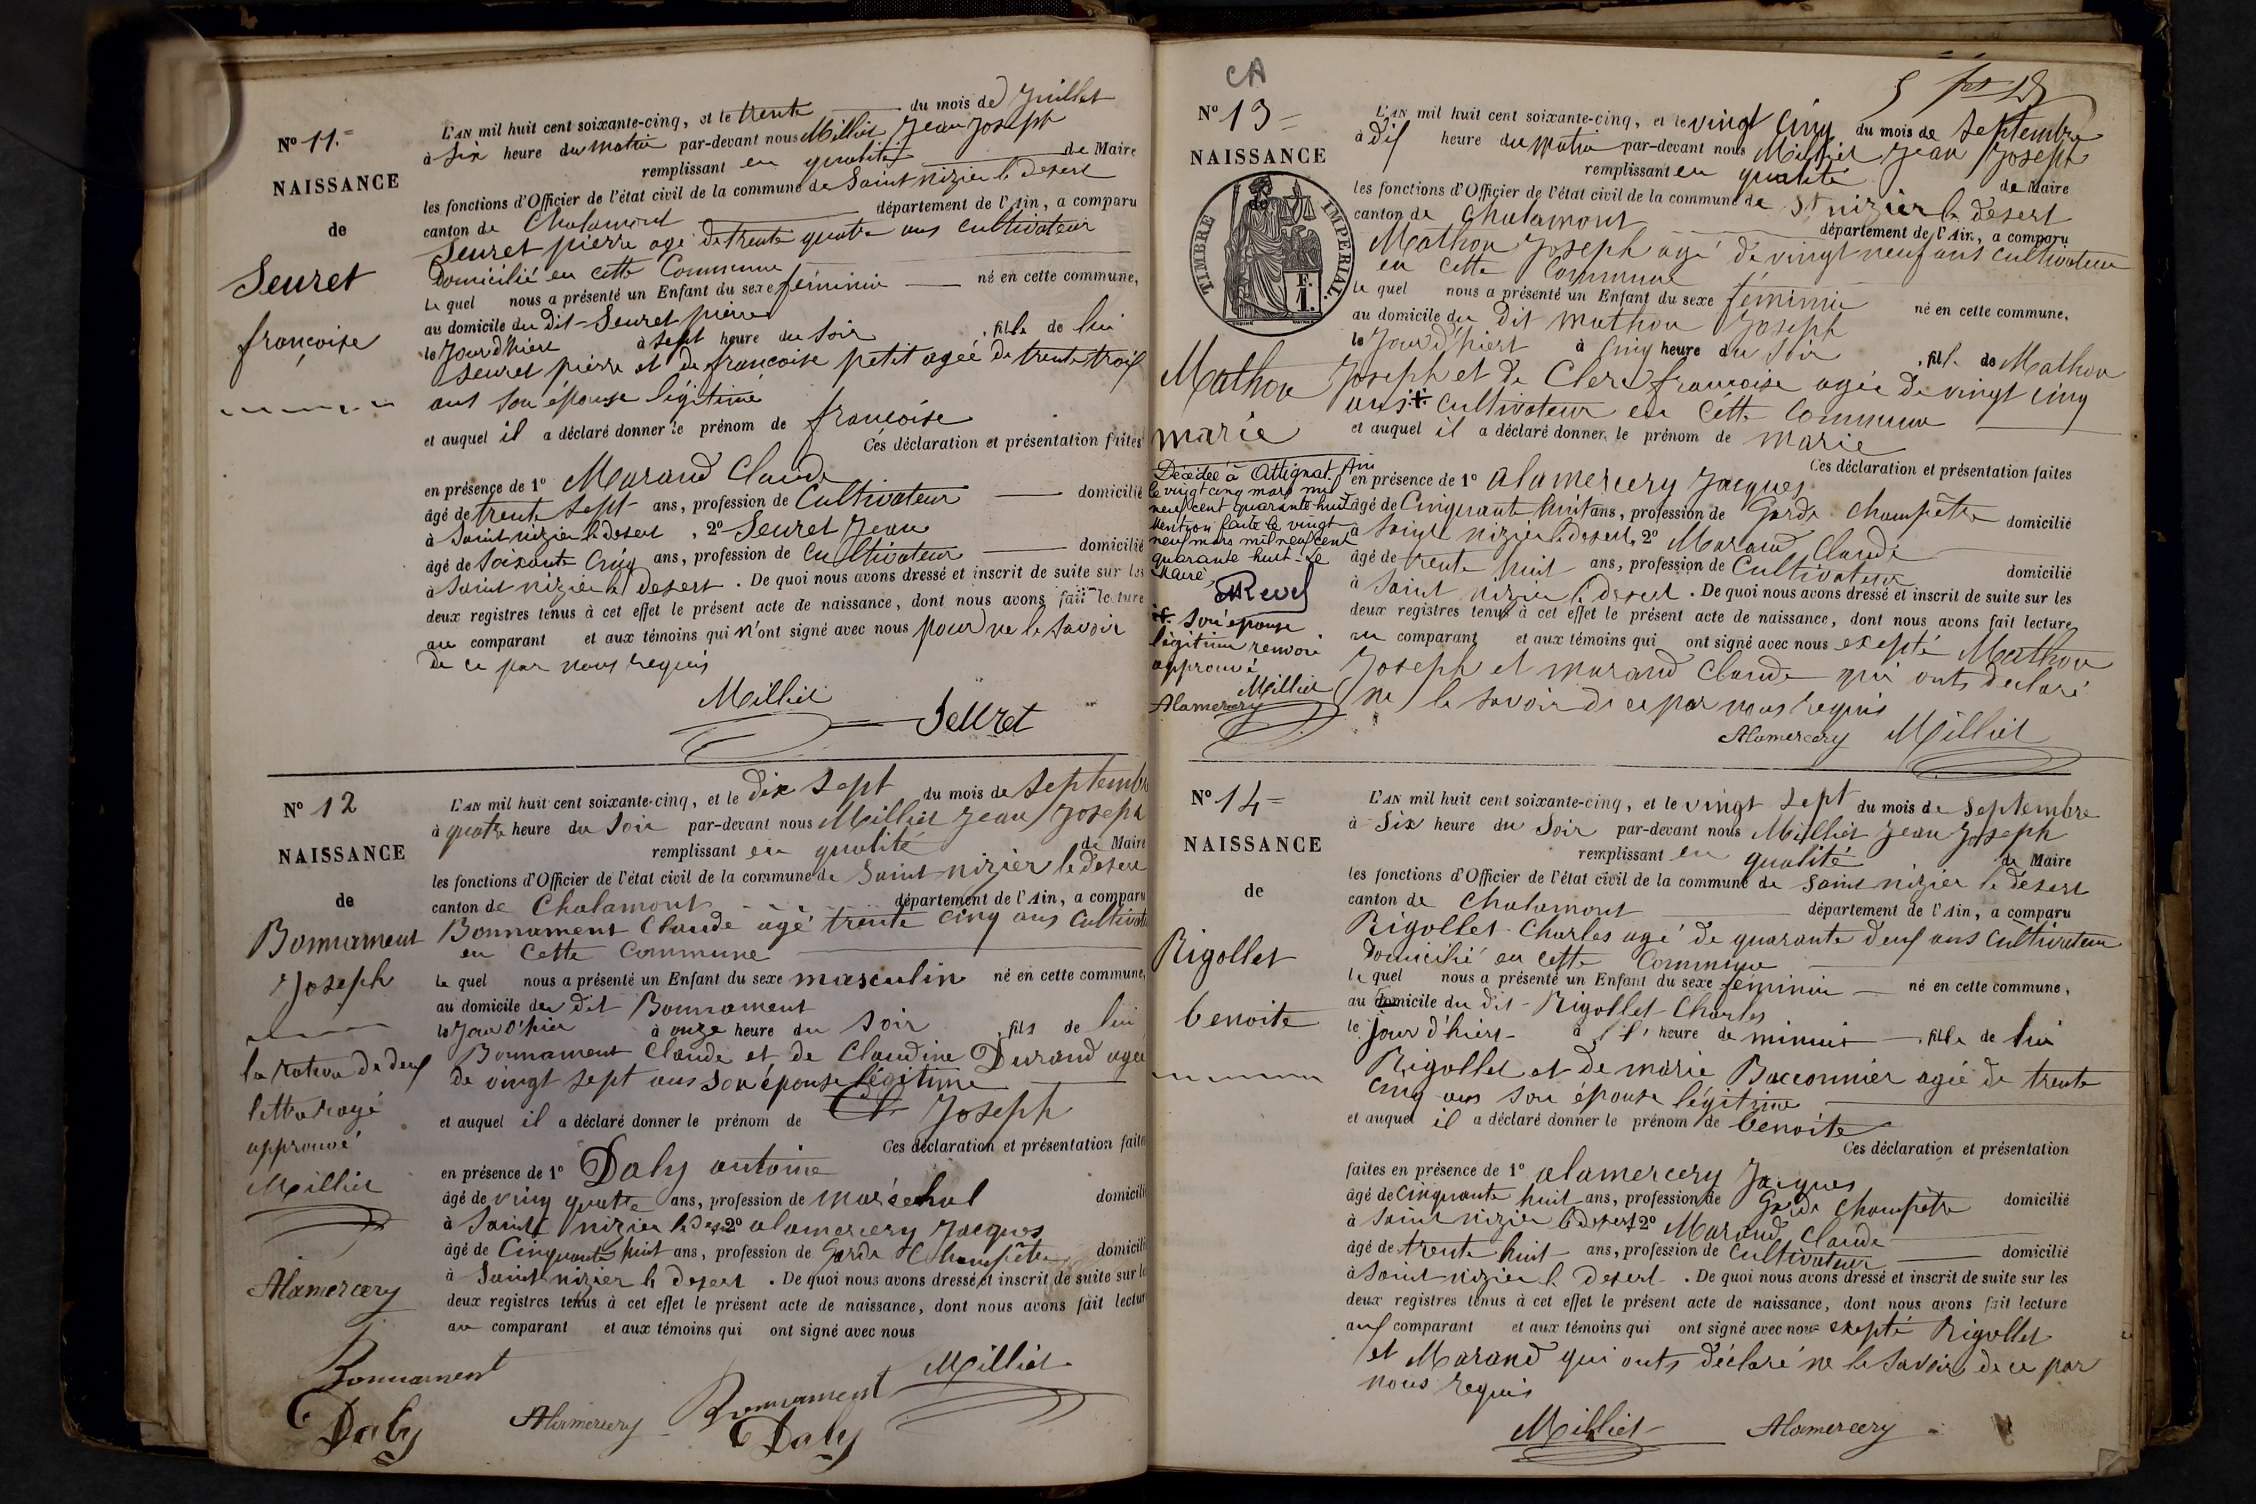 Nº 11.
NAISSANCE
de
Seuret
françoise
L'AN mil huit cent soixante-cinq, et le trente du mois de Juillet
à Six heure du matin par-devant nous Milliet Jean Joseph
remplissant en qualité de Maire
les fonctions d'Officier de l'état civil de la commune de Saint nizier le Desert
canton de Chalamont département de l'Ain, a comparu
Seuret pierre agé de trente quatre ans cultivateur
Domicilié en cette Commune
le quel nous a présenté un Enfant du sexe féminin né en cette commune,
au domicile du Dit Seuret pierre
le Jour d'hiert à sept heure du soir , fille de lui
Seuret pierre et de francoise petit agée de trente trois
ans son épouse légitime
et auquel il a déclaré donner le prénom de françoise
Ces déclaration et présentation faites
en présence de 1º Marand Claude
âgé de trente sept ans, profession de Cultivateur domicilié
à Saint nizier le desert , 2º Seuret Jean
âgé de Soixante Cinq ans, profession de Cultivateur domicilié
à Saint nizier le desert . De quoi nous avons dressé et inscrit de suite sur les
deux registres tenus à cet effet le présent acte de naissance, dont nous avons fait lecture
au comparant et aux témoins qui n'ont signé avec nous pour ne le savoir
De ce par nous requis
Milliet
Seuret
Nº 12
NAISSANCE
de
Bonnament
Joseph
la rature de deux
lettre rayé
approuvé
Milliet
Alamercery
Bonnament
Daly
L'AN mil huit cent soixante-cinq, et le dix sept du mois de Septembre
à quatre heure du Soir par-devant nous Milliet Jean Joseph
remplissant en qualité de Maire
les fonctions d'Officier de l'état civil de la commune de Saint nizier le desert
canton de Chalamont département de l'Ain, a comparu
Bonnament Claude agé trente cinq ans Cultivate
en Cette Commune
le quel nous a présenté un Enfant du sexe masculin né en cette commune,
au domicile du dit Bonnament
le Jour d'hier à onze heure du soir , fils de lui
Bonnament Claude et de Claudine Durand agée
de vingt sept ans son épouse légitime
et auquel il a déclaré donner le prénom de Joseph
Ces déclaration et présentation faites
en présence de 1º Daly antoine
âgé de ving quatre ans, profession de maréchal domicilié
à Saint nizier le Des 2º alamercery Jacques
âgé de Cinquante huit ans, profession de Garde Champêtre domicilié
à Saint nizier le desert . De quoi nous avons dressé et inscrit de suite sur le
deux registres tenus à cet effet le présent acte de naissance, dont nous avons fait lecture
au comparant et aux témoins qui ont signé avec nous
Milliet
Alamercery
Bonnament
Daly
CA
Nº 13
NAISSANCE
de
TIMBRE IMPERIAL.
F.
1.
Mathon
marie
Décédée à Attignat Ain
le vingt cinq mars mil
neuf cent quarante huit
Mention faite le vingt
neuf mars mil neuf cent
quarante huit - Le
Maire,
Revel
son épouse
légitime renvoi
approuvé
Milliet
Alamercery
L'AN mil huit cent soixante-cinq, et le vingt Cinq du mois de Septembre
à Dix heure du matin par-devant nous Milliet Jean Joseph
remplissant en qualité de Maire
les fonctions d'Officier de l'état civil de la commune de St nizier le desert
canton de Chalamont département de l'Ain, a comparu
Mathon Joseph agé de vingt neuf ans cultivateur
en cette Commune
le quel nous a présenté un Enfant du sexe féminin né en cette commune,
au domicile du dit mathon Joseph
le Jour d'hiert à Cinq heure du Soir , fille de Mathon
Joseph et de Clerc françoise agée de vingt cinq
ans cultivateur en Cette Commune
et auquel il a déclaré donner le prénom de marie
Ces déclaration et présentation faites
en présence de 1º alamercery Jacques
âgé de Cinquante huit ans, profession de Garde champêtre domicilié
à Saint nizier le Desert, 2º Marand Claude
âgé de trente huit ans, profession de Cultivateur domicilié
à Saint nizier le desert . De quoi nous avons dressé et inscrit de suite sur les
deux registres tenus à cet effet le présent acte de naissance, dont nous avons fait lecture
au comparant et aux témoins qui ont signé avec nous exepté Mathon
Joseph et marand Claude qui onts déclaré
ne le savoir de ce par nous requis
Alamercery Milliet
Nº 14
NAISSANCE
de
Rigollet
benoite
L'AN mil huit cent soixante-cinq, et le vingt Sept du mois de Septembre
à Six heure du Soir par-devant nous Milliet Jean Joseph
remplissant en qualité de Maire
les fonctions d'Officier de l'état civil de la commune de Saint nizier le désert
canton de Chalamont département de l'Ain, a comparu
Rigollet Charles agé de quarante deux ans Cultivateur
Domicilié en cette Commune
le quel nous a présenté un Enfant du sexe féminin né en cette commune,
au domicile du dit Rigollet Charles
le jour d'hiert à l' heure de minuit , fille de lui
Rigollet et de marie Bacconnier agée de trente
cinq ans son épouse légitime
et auquel il a déclaré donner le prénom de benoite
Ces déclaration et présentation
faites en présence de 1º alamercery Jacques
âgé de cinquante huit ans, profession de Garde champêtre domicilié
à Saint nizier le desert 2º Marand Claude
âgé de trente huit ans, profession de Cultivateur domicilié
à Saint nizier le Desert . De quoi nous avons dressé et inscrit de suite sur les
deux registres tenus à cet effet le présent acte de naissance, dont nous avons fait lecture
aux comparant et aux témoins qui ont signé avec nous exepté Rigollet
et Marand qui onts déclaré ne le Savoir de ce par
nous requis
Milliet Alamercery